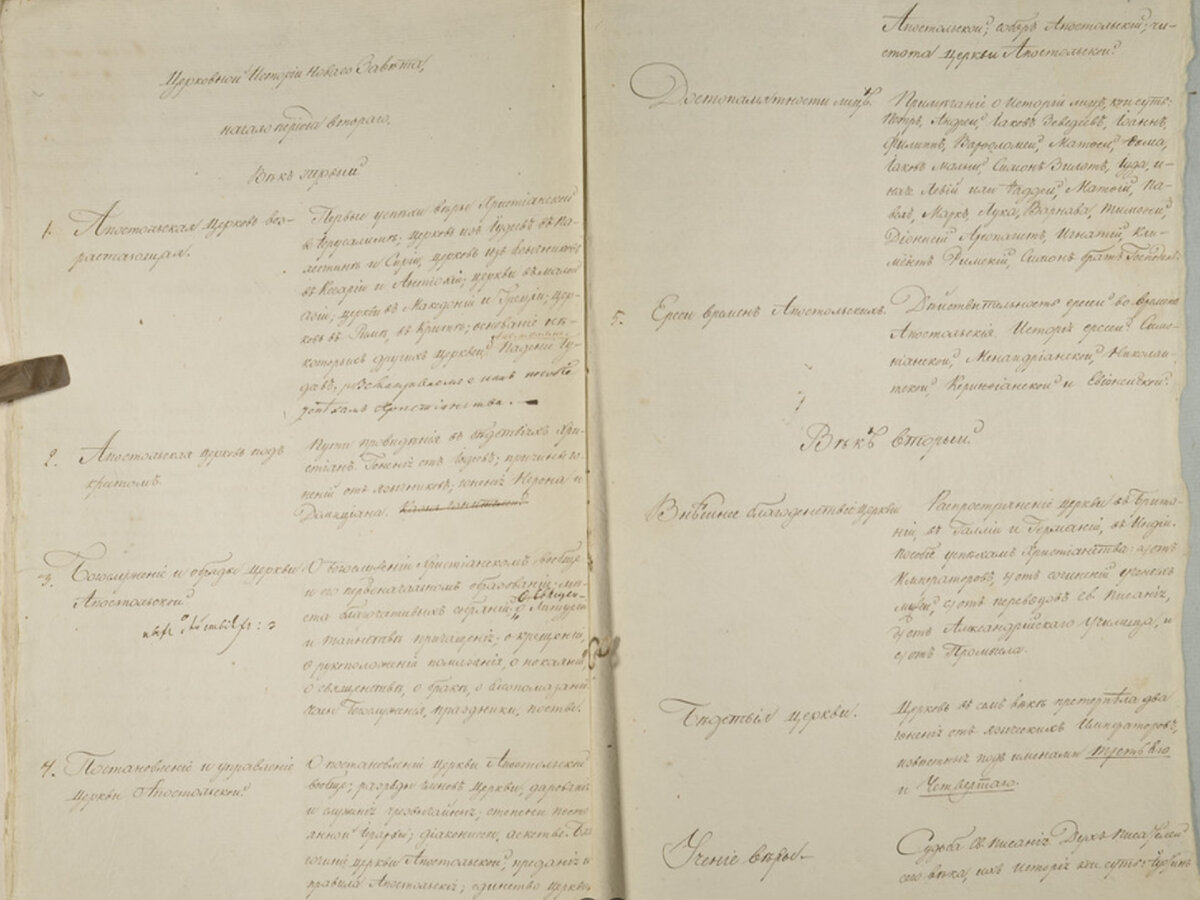 Церковной Исторіи Новаго Завѣта,
начало періода втораго.
Вѣкъ первый
1. Апостольская Церковь воз-
растающая.
Первые успѣхи вѣры Христіанской
въ Іерусалимѣ; церковь изъ Іудеевъ въ Па-
лестинѣ и Сиріи, церковь изъ язычниковъ
въ Кесаріи и Антіохіи; церкви въ малой
Азіи; церкви въ Македоніи и Греціи; цер-
ковь въ Римѣ, въ Критѣ; основаніе нѣ-
которыхъ другихъ церквей. Паденіе Іу-
успѣхамъ Христіанства.
2. Апостольская Церковь подъ
крестомъ.
Пути провидѣнія въ бѣдствіяхъ Хри-
стіанъ. Гоненія отъ Іудеевъ; причины го-
неній отъ язычниковъ; гоненія Нерона и
Домиціана.
3. Богослуженіе и обряды Церкви
Апостольской
О богослуженіи Христіанскомъ вообще
и его первоначальномъ образованіи; мѣ-
ста благочестивыхъ собраній; о Литургіи
и таинствѣ причащенія; о крещеніи,
о рукоположеніи помазанія, о покаяніи,
о священствѣ, о бракѣ, о елеопомазаніи
чинъ богослуженія, праздники, посты.
4. Постановленіе и управленіе
Церкви Апостольской
О постановленіи церкви Апостольской
вообще; разряды членовъ Церкви; дарованія
и служенія чрезвычайныя; степени посто-
янной Іерархіи; діакониссы, аскеты. Бла-
гочиніе церкви Апостольской; преданія и
правила Апостольскія; единство Церкви
Апостольской; соборъ Апостольскій; чи-
стота Церкви Апостольской.
Достопамятности лицъ.
Примѣчанія о Исторіи лицъ, кои суть:
Петръ, Андрей, Іаковъ Зеведеевъ, Іоаннъ,
Филиппъ, Варѳоломей, Матѳей, Ѳома,
Іаковъ малый, Симонъ Зилотъ, Іуда, и-
наче Левій или Ѳаддей, Матѳій, Па-
велъ, Маркъ, Лука, Варнава, Тимоѳей,
Діонисій Ареопагитъ, Игнатій, Кли-
ментъ Римскій, Симонъ братъ Господень.
5. Ереси временъ Апостольскихъ.
Дѣйствительность ересей во времена
Апостольскія. Исторія ересей: Симо-
ніанской, Менандріанской, Николаи-
тской, Керинѳіанской и Евіонейской.
Вѣкъ вторый
Внѣшнее благоденствіе церкви
Распространеніе церкви въ Брита-
ніи, въ Галліи и Германіи, въ Индіи.
Пособіе успѣхамъ Христіанства: отъ
Императоровъ, отъ сочиненій ученыхъ
мужей, отъ переводовъ св. Писанія,
отъ Александрійскаго училища, и
отъ Промысла.
Бѣдствія церкви.
Церковь въ семъ вѣкѣ претерпѣла два
гоненія отъ языческихъ Императоровъ,
извѣстныя подъ именами третьяго
и Четвертаго.
Ученіе вѣры
Судьба св. писанія. Духъ писателей
сего вѣка, ихъ Исторія кои суть: